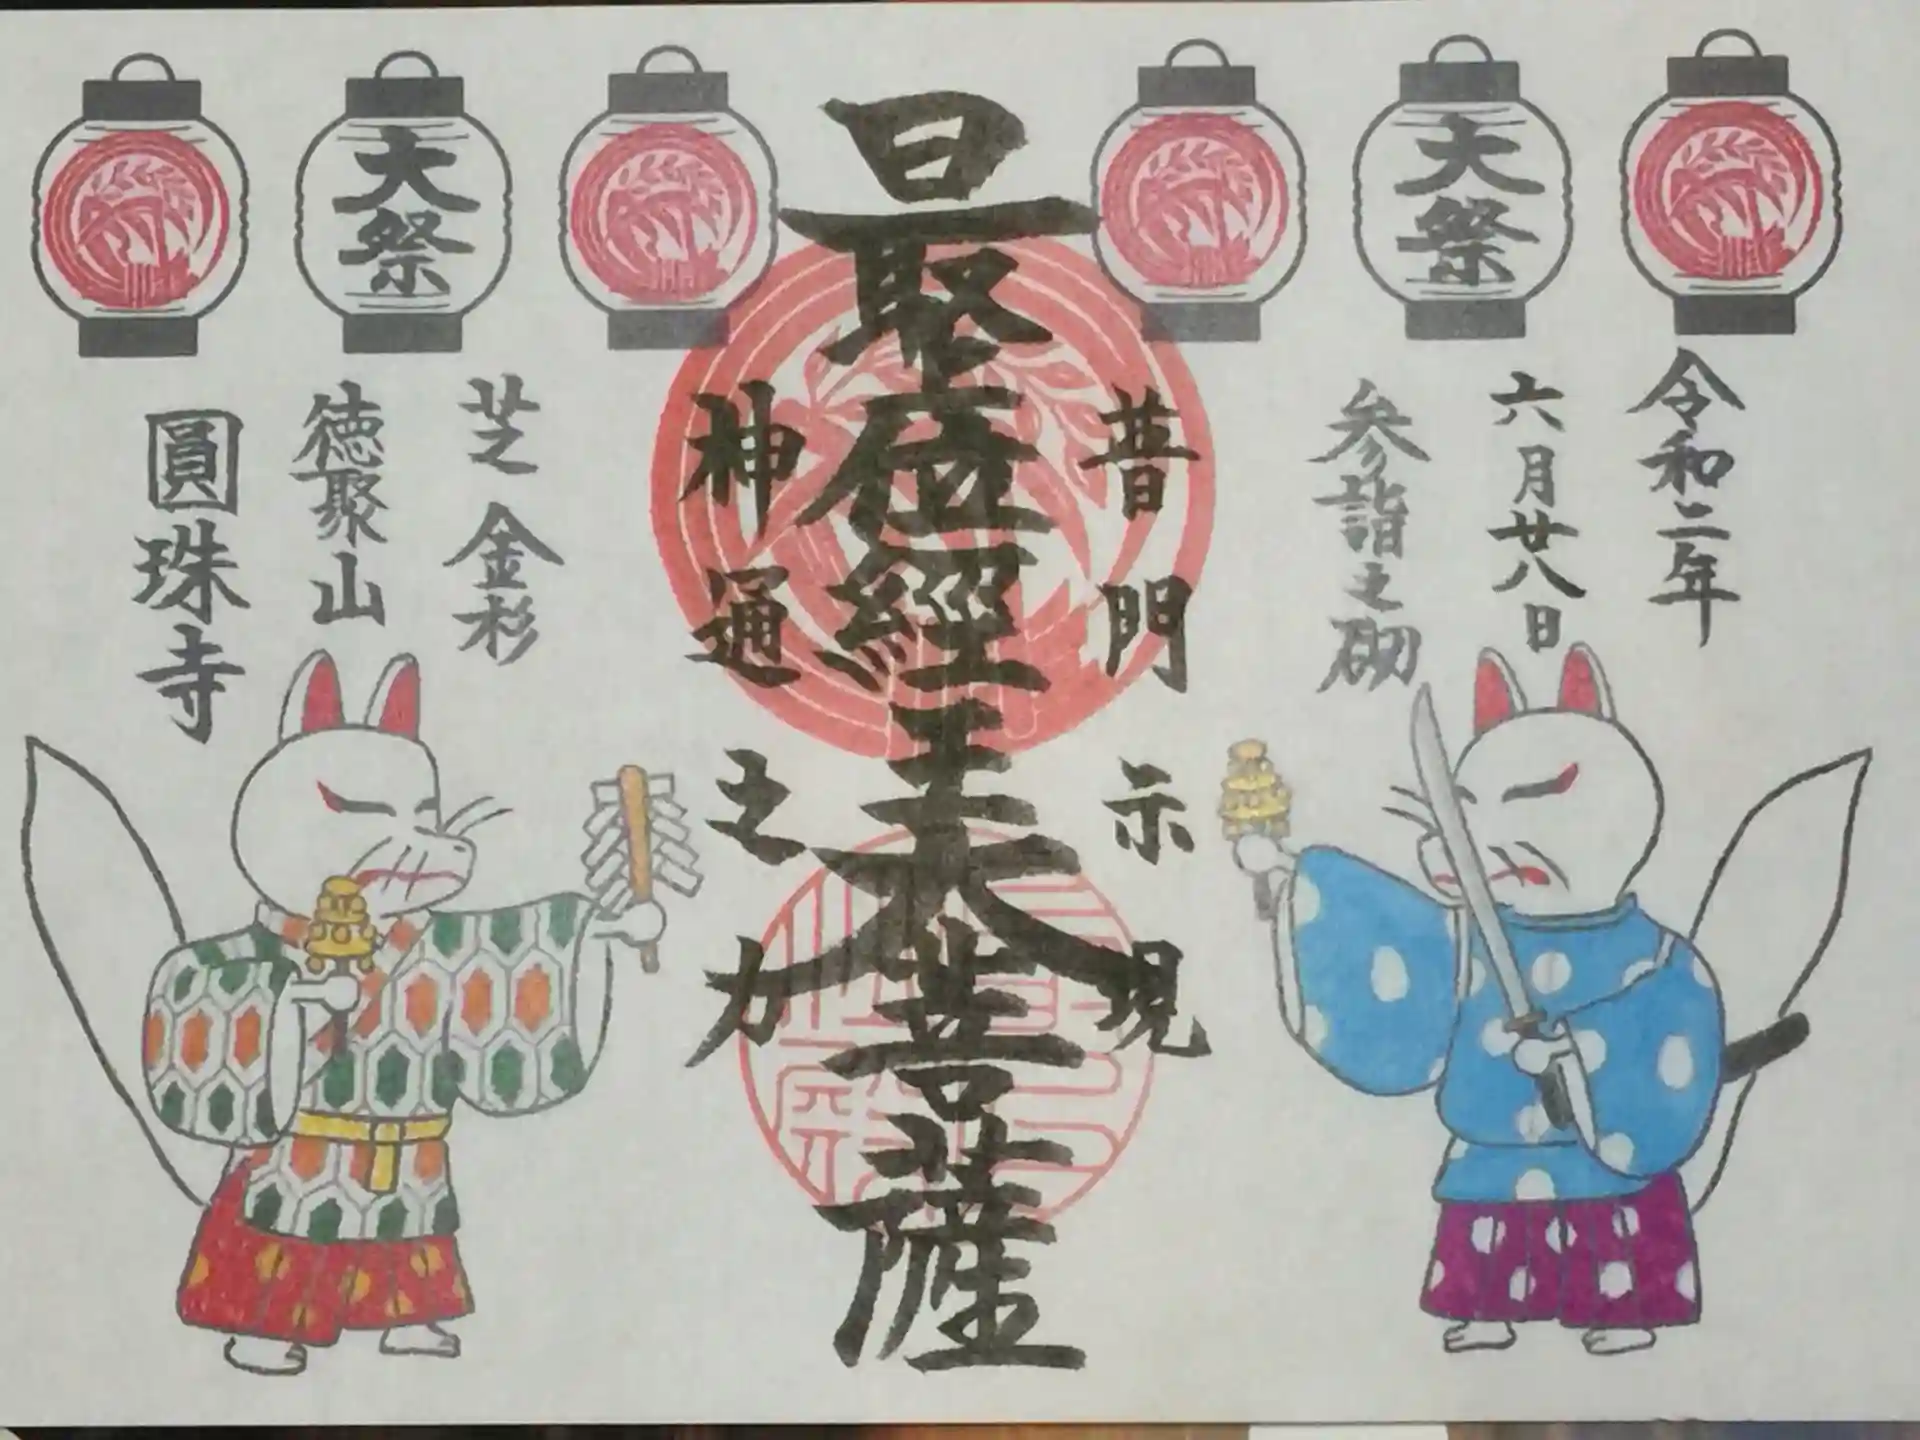 大祭
大祭
令和二年
六月廿八日
参詣之砌
普門示現
最上位經王大菩薩
神通之力
芝 金杉
徳聚山
圓珠寺